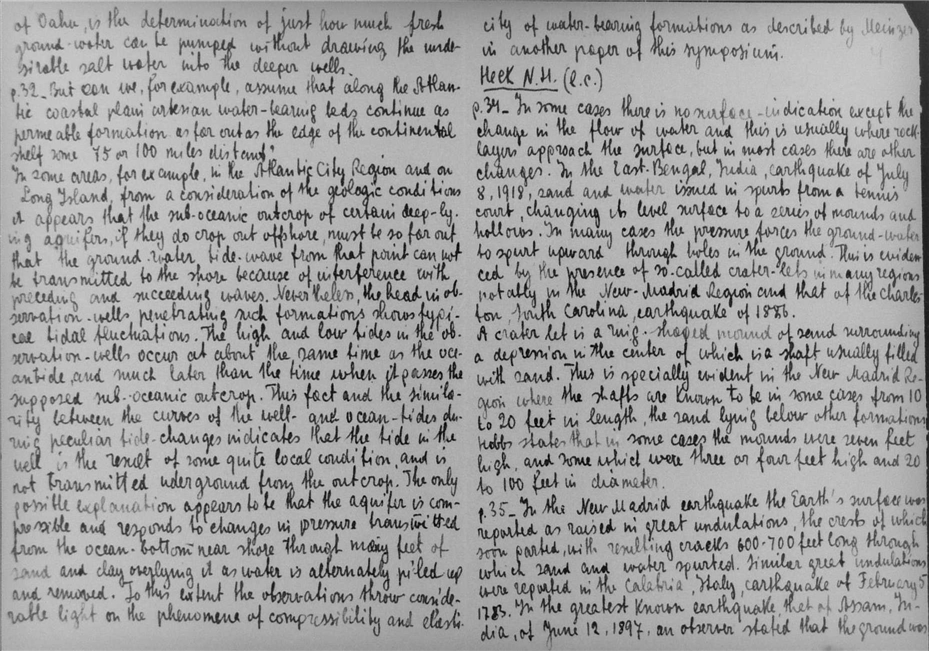 of Oahu, is the determination of just how much fresh
ground-water can be pumped without drawing the unde-
sirable salt water into the deeper wells.
p.32_ But can we, for example, assume that along the Atlan-
tic coastal plain artesian water-bearing beds continue as
permeable formation as far out as the edge of the continental
shelf some 75 or 100 miles distant?
In some areas, for example, in the Atlantic City Region and on
Long Island, from a consideration of the geologic conditions
it appears that the sub-oceanic outcrop of certain deep-ly-
ing aquifers, if they do crop out offshore, must be so far out
that the ground-water tide-wave from that point can not
be transmitted to the shore because of interference with
preceding and succeeding waves. Nevertheless, the head in ob-
servation-wells penetrating such formations shows typi-
cal tidal fluctuations. The high and low tides in the ob-
servation-wells occur at about the same time as the oce-
antide, and much later than the time when it passes the
supposed sub-oceanic outcrop. This fact and the simila-
rity between the curves of the well- and ocean-tides du-
ring peculiar tide-changes indicates that the tide in the
well is the result of some quite local condition, and is
not transmitted uderground from the outcrop. The only
possible explanation appears to be that the aquifer is com-
pressible and responds to changes in pressure transmitted
from the ocean-bottom near shore through many feet of
sand and clay overlying it as water is alternately piled up
and removed. To this extent the observations throw conside-
rable light on the phenomena of compressibility and elasti-
city of water-bearing formations as described by Meinzer
in another paper of this symposium.
Heck N.H. (l.c.)
p.34_ In some cases there is no surface-indication except the
change in the flow of water and this is usually where rock-
layers approach the surface, but in most cases there are other
changes. In the East-Bengal, India, earthquake of July
8, 1918, sand and water issued in spurts from a tennis
court, changing its level surface to a series of mounds and
hollows. In many cases the pressure forces the ground-water
to spurt upward through holes in the ground. This is eviden-
ced by the presence of so-called crater-lets in many regions
notably in the New-Madrid Region and that of the Charles-
ton South Carolina, earthquake of 1886.
A crater let is a ring-shaped mound of sand surrounding
a depression in the center of which is a shaft usually filled
with sand. This is specially evident in the New Madrid Re-
gion where the shafts are known to be in some cases from 10
to 20 feet in length, the sand lying below other formations
Hobbs states that in some cases the mounds were seven feet
high, and some which were three or four feet high and 20
to 100 feet in diameter.
p.35_ In the New Madrid earthquake the Earth's surface was
reported as raised in great undulations, the crests of which
soon parted, with resulting cracks 600-700 feet long through
which sand and water spurted. Similar great undulations
were reported in the Calabria, Italy, earthquake of February 5
1783. In the greatest known earthquake, that of Assam, In-
dia, of June 12, 1897, an observer stated that the ground was